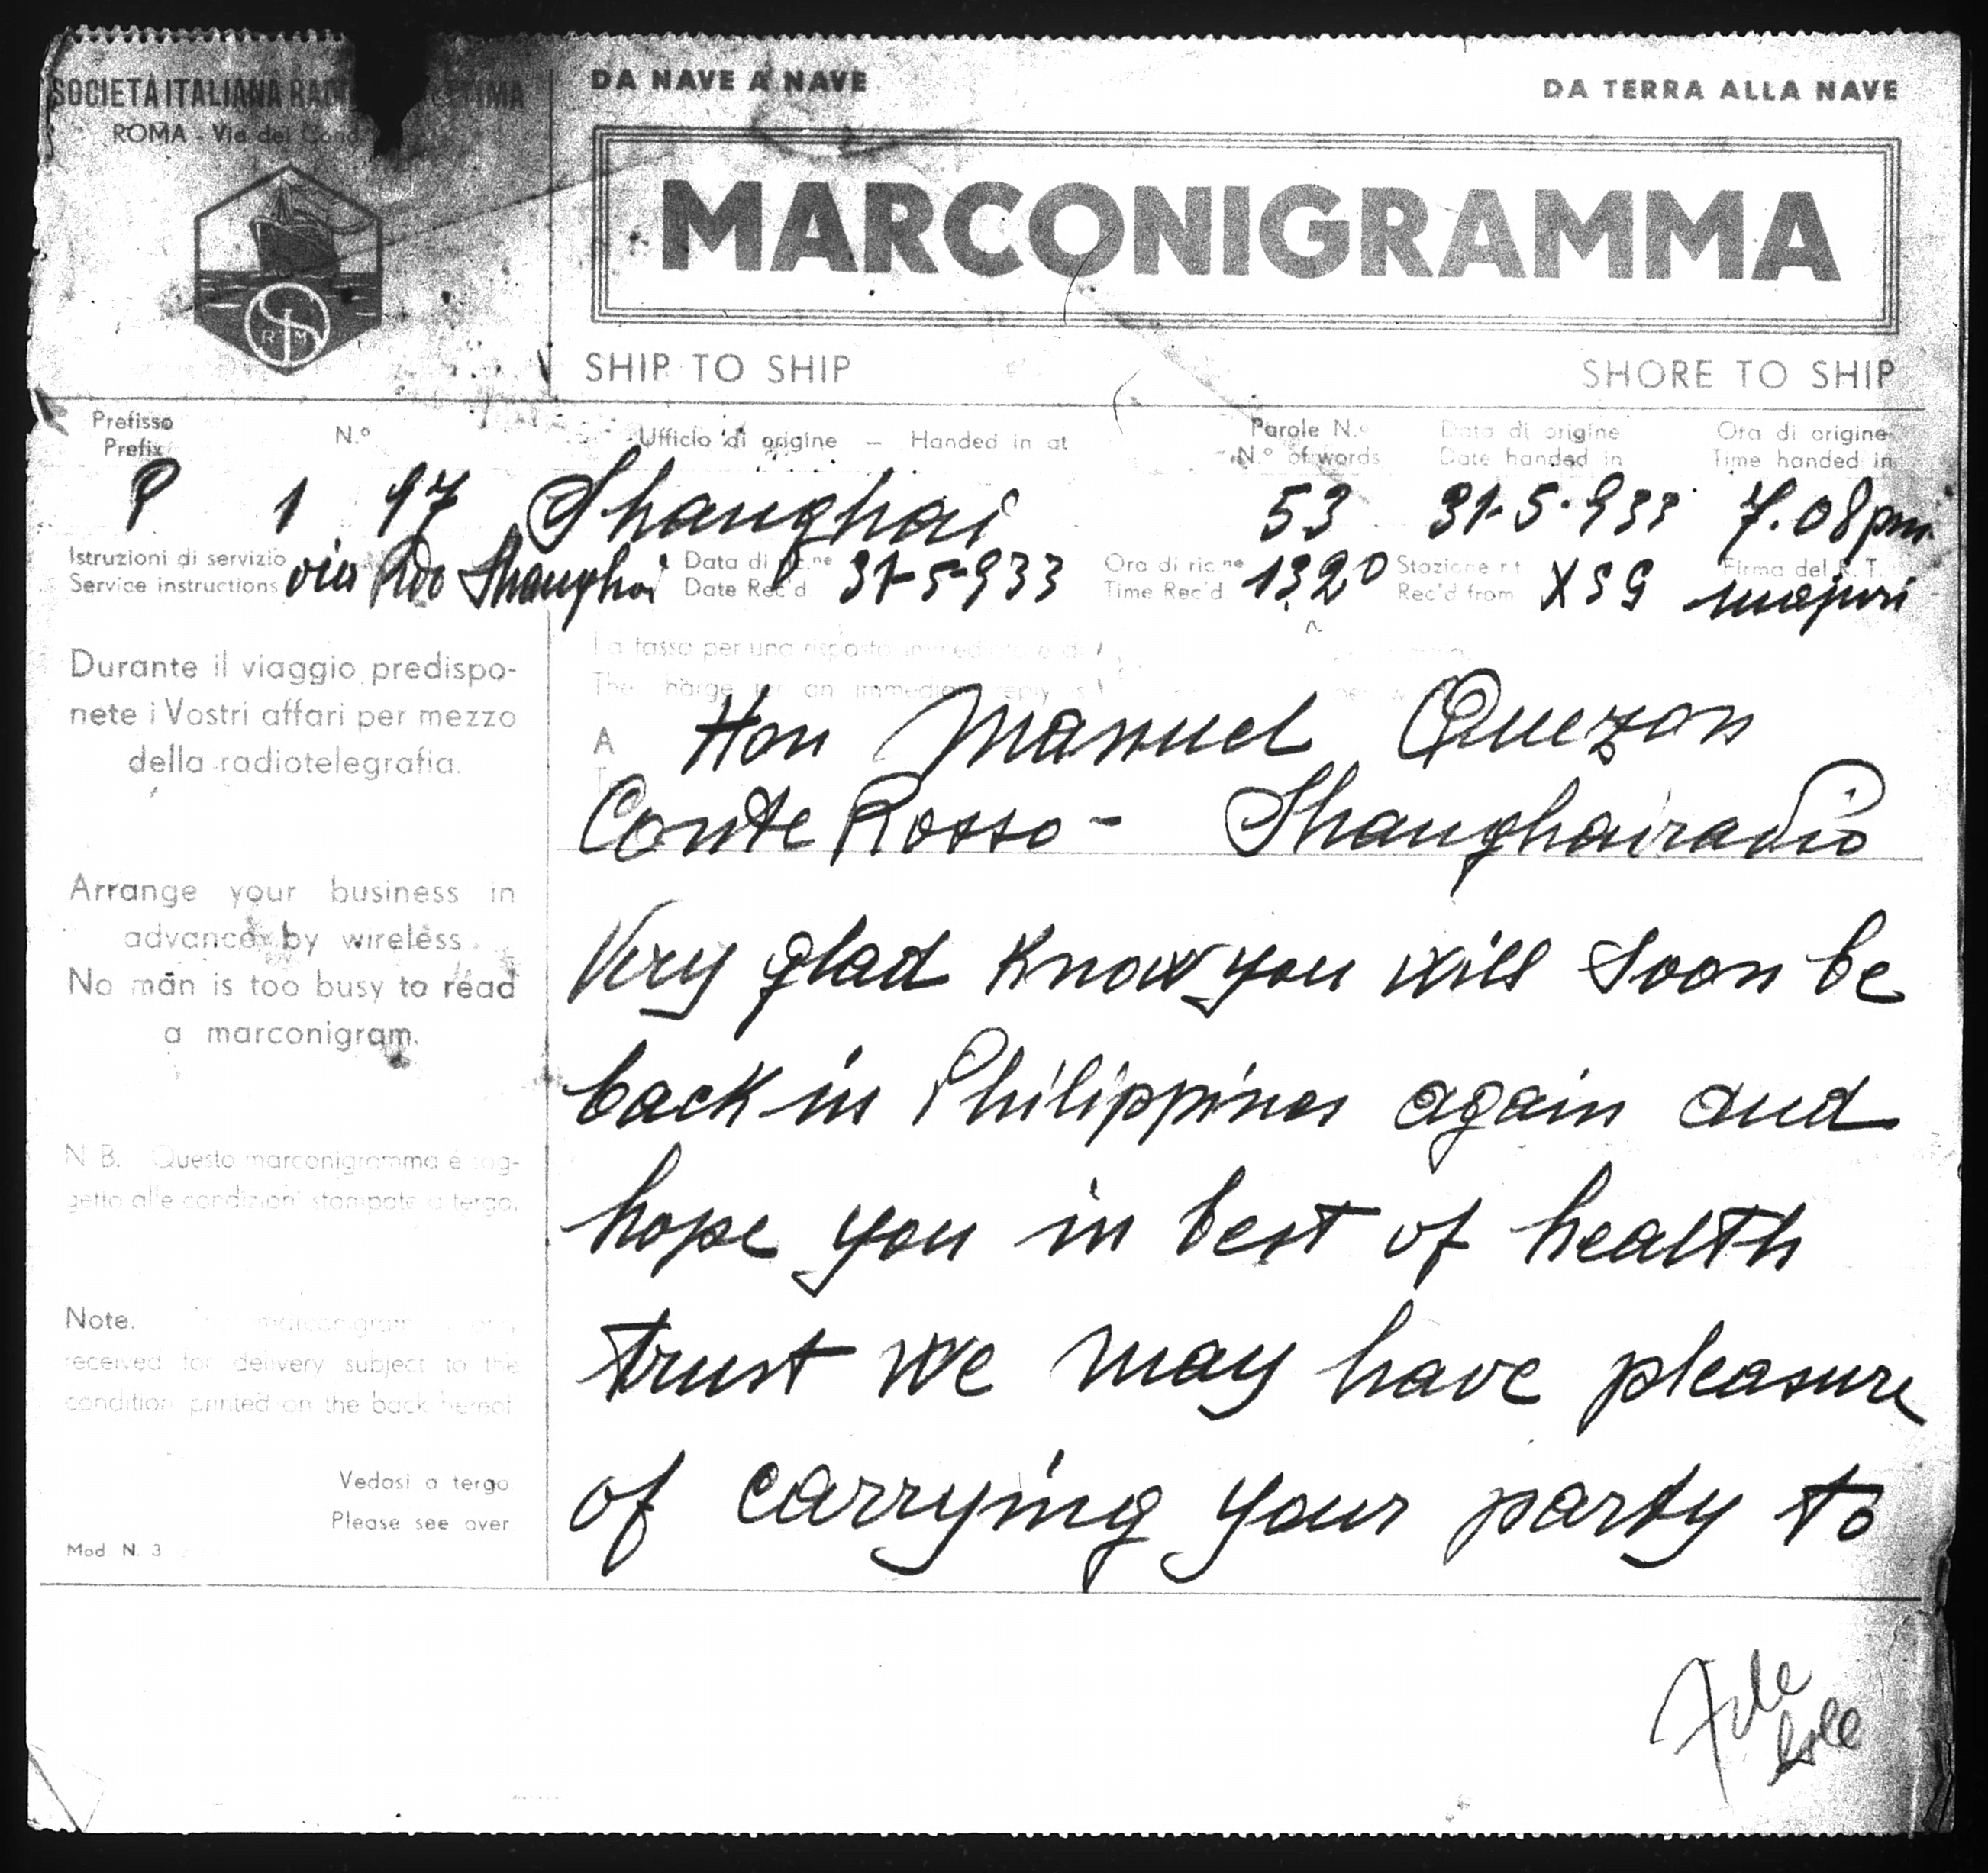 SOCIETÀ ITALIANA
ROMA - Via dei
DA NAVE A NAVE
DA TERRA ALLA NAVE
MARCONIGRAMMA
SHIP TO SHIP
SHORE TO SHIP
Prefisso
Prefix
N.º
Ufficio di origine — Handed in at
Parole N.º
N.º of words
Data di origine
Date handed in
Ora di origine
Time handed in
P 1 97 Shanghai 53 31-5-933 7.08pm
Istruzioni di servizio
Service instructions
via Rdo Shanghai
Data di ric.ne
Date Rec'd
31-5-933
Ora di ric.ne
Time Rec'd
1320
Stazione r.t
Rec'd from
XSG
Firma del R. T.
La tassa per una risposta immediata è di
The charge for an immediate reply is
A
Hon Manuel Quezon
Conte Rosso - Shanghairadio
Very glad know you will soon be
back in Philippines again and
hope you in best of health
trust we may have pleasure
of carrying your party to
Durante il viaggio predispo-
nete i Vostri affari per mezzo
della radiotelegrafia.
Arrange your business in
advance by wireless.
No man is too busy to read
a marconigram.
N B. Questo marconigramma è sog-
getto alle condizioni stampate a tergo.
Note. marconigram
received for delivery subject to the
condition printed on the back hereof.
Vedasi a tergo
Please see over
Mod. N. 3